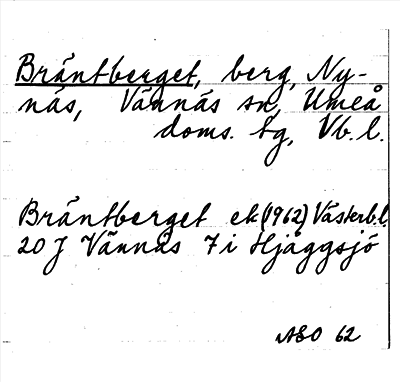 Bräntberget, berg, Ny-
näs, Vännäs sn, Umeå
doms. tg, Vb. l.
Bräntberget ek (1962) Västerb.l.
20 J Vännäs 7 i Hjåggsjö
AEO 62